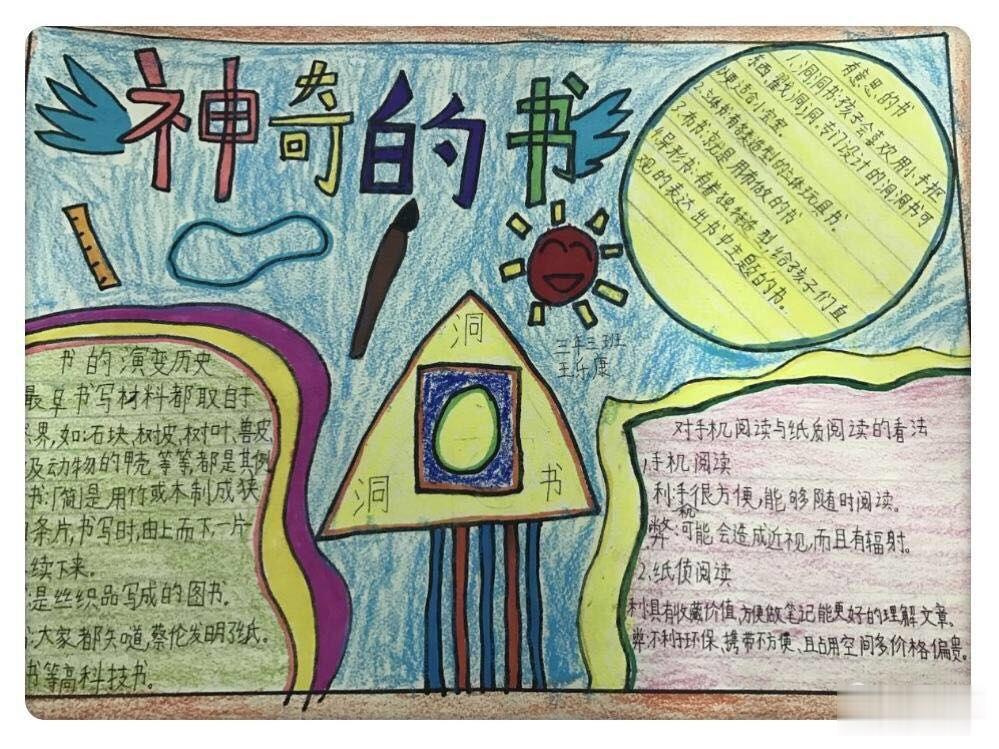 神奇的书
有意思的书
1.洞洞书:孩子会喜欢用小手抠
东西,翻戳洞洞,专门设计的洞洞书可
以更适合小宝宝.
2.立体书:有着造型的立体玩具书.
3.布书:就是用布做的书
4.异形书:有着独特造型,给孩子们直
观的表达出书中主题的书.
三年三班
王乐康
洞
洞
书
书的演变历史
最早书写材料都取自于
界,如:石块、树皮、树叶、兽皮、
及动物的甲壳等等都是其例
书:(简)是用竹或木制成狭
条片,书写时,由上而下一片
续下来.
是丝织品写成的图书.
:大家都知道,蔡伦发明了纸.
书等高科技书.
对手机阅读与纸质阅读的看法
1.手机阅读
利:手机很方便,能够随时阅读.
弊:可能会造成近视,而且有辐射.
2.纸质阅读
利:具有收藏价值,方便做笔记能更好的理解文章.
弊:不利于环保、携带不方便、且占用空间多,价格偏贵.